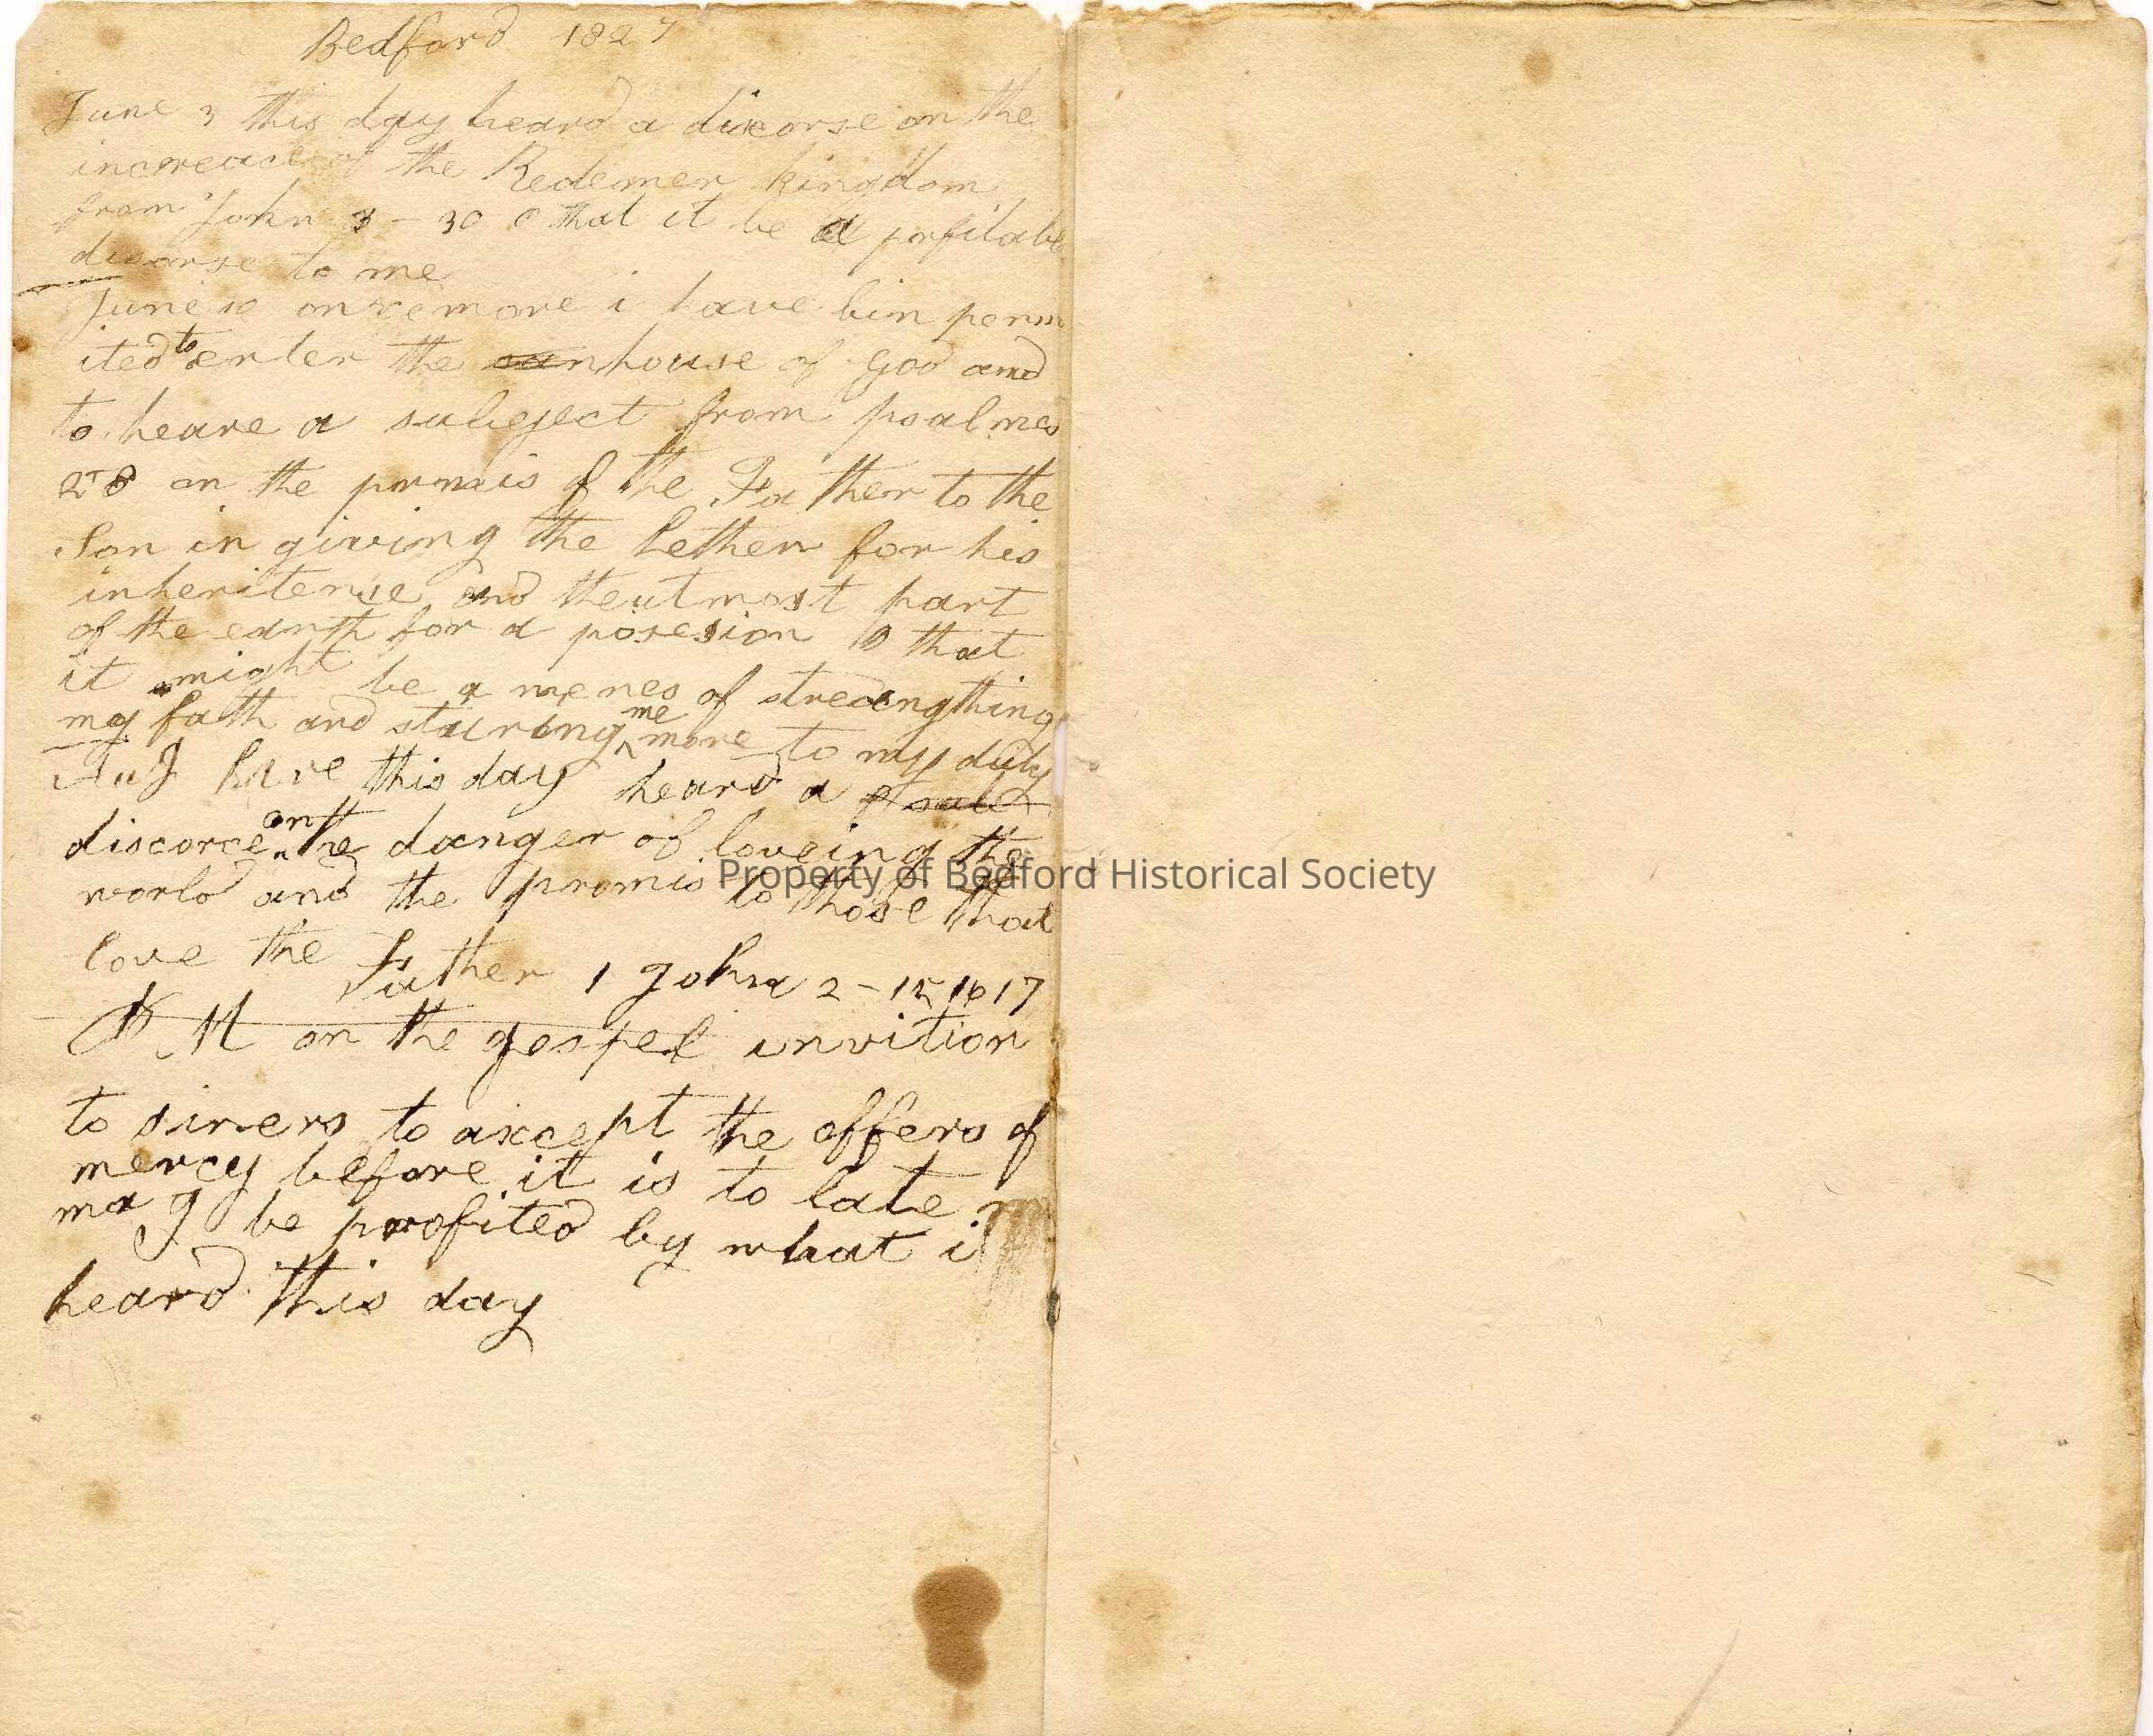 Bedford 1827
June 3 this day heard a discorse on the
increace of the Redemer kingdom
from John 3-30 O that it be a porfitable
discorse to me
June 10 onxe more i have bin perm
ited to enter the house of God and
to heare a subgject from psalmes
2-8 on the promis of the Father to the
Son in giving the hethen for his
inheritense and the utmost part
of the earth for a posesion O that
it might be a menes of strengthing
my fath and sturing me more to my duty
I have this day heard a
discorce on the danger of loveing the
world and the promis to those that
love the Father 1 John 2-15 16 17
P M on the gospel invition
to siners to axcept the offers of
mercy before it is to late
ma I be profited by what i
heard this day
Property of Bedford Historical Society